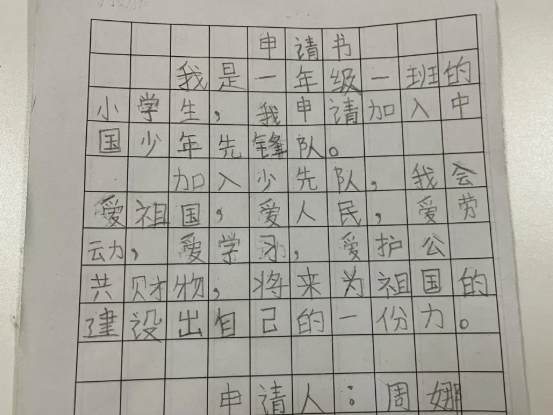 申请书
我是一年级一班的
小学生，我申请加入中
国少年先锋队。
加入少先队，我会
爱祖国，爱人民，爱劳
动，爱学习，爱护公
共财物，将来为祖国的
建设出自己的一份力。
申请人：周娜